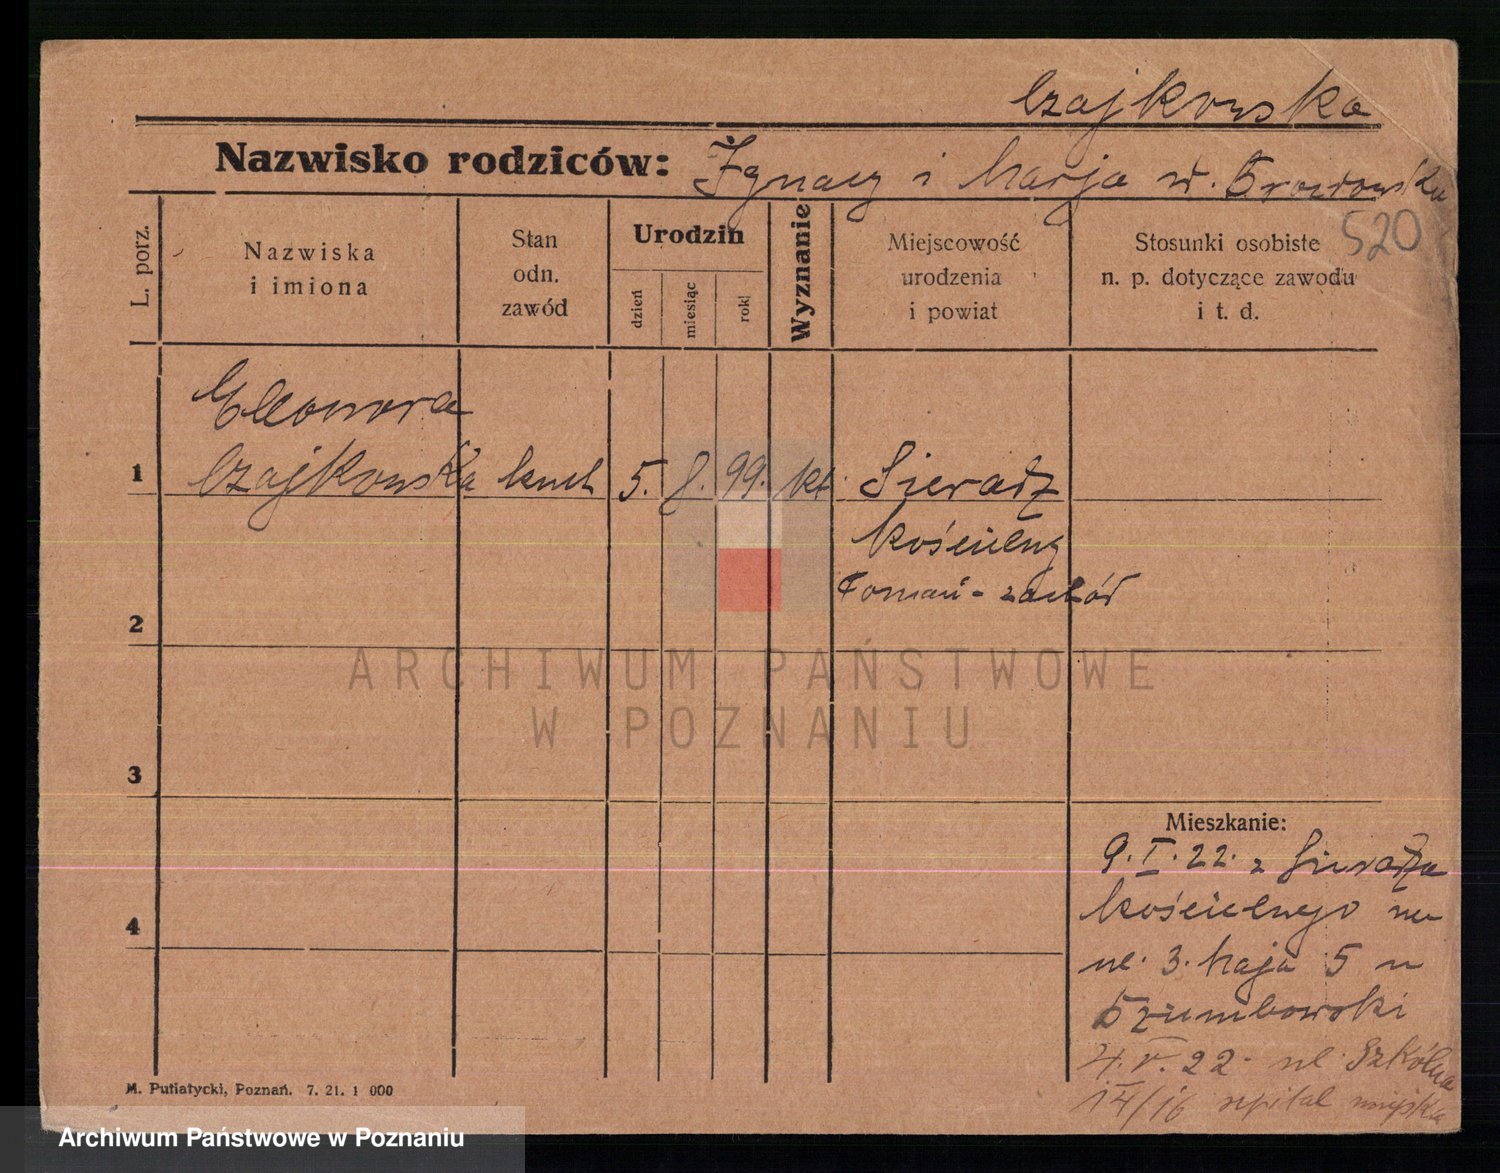 Czajkowska
Nazwisko rodziców: Ignacy i Marja
520
L. porz.
Nazwiska
i imiona
Stan
odn.
zawód
Urodzin
dzień
miesiąc
rok
Wyznanie
Miejscowość
urodzenia
i powiat
Stosunki osobiste
n. p. dotyczące zawodu
i t. d.
Eleonora
1 Czajkowska kuch 5. 8. 99. kt. Sieradz
Kościelny
Poznań - zachód
2
3
4
ARCHIWUM PAŃSTWOWE
W POZNANIU
Mieszkanie:
9.I.22. z Sieradza
Kościelnego na
ul. 3. Maja 5 u
4.V.22. ul. Szkólna
szpital miejski
M. Putiatycki, Poznań. 7. 21. 1 000
Archiwum Państwowe w Poznaniu